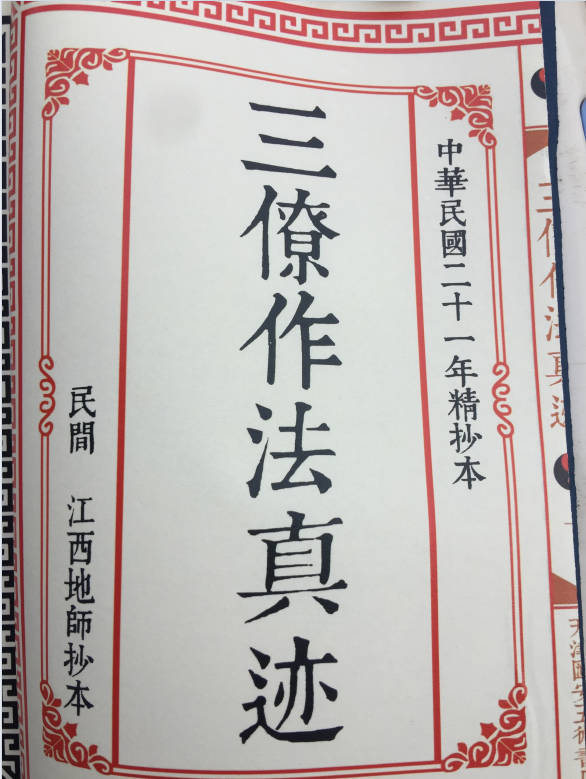 中華民國二十一年精抄本
三僚作法真迹
民間 江西地師抄本
三僚作法真迹